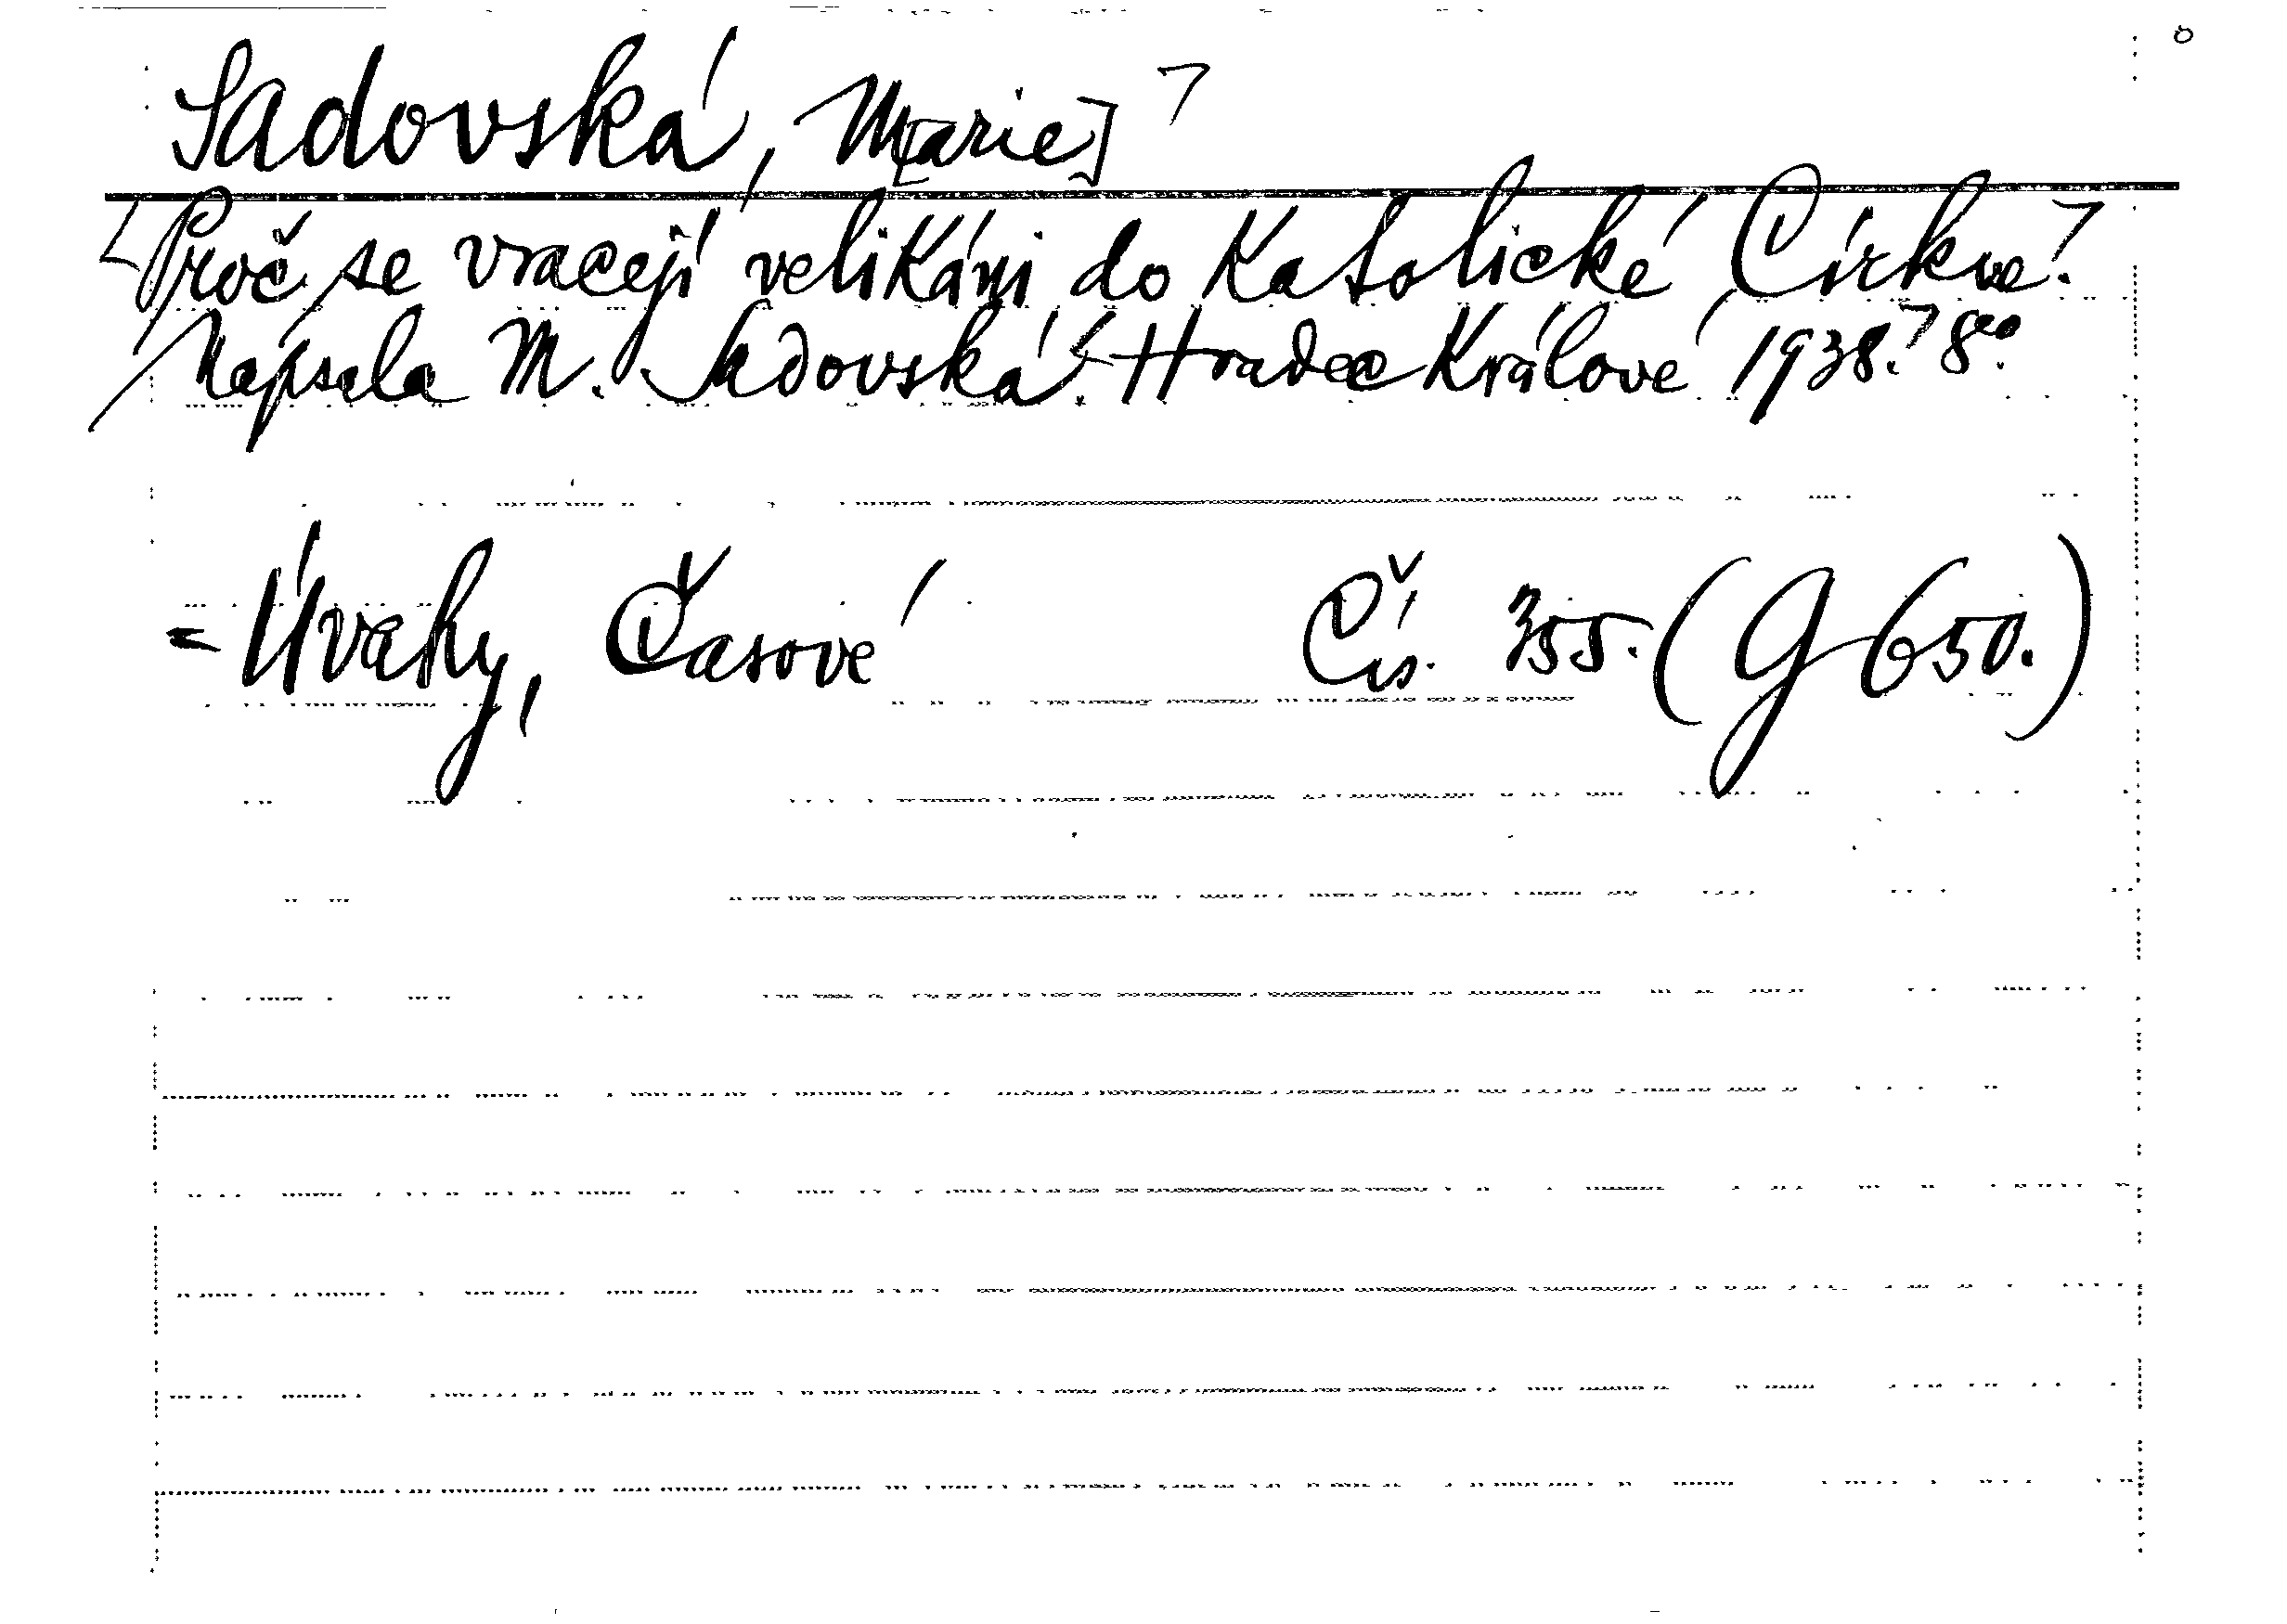 Sadovská, M[arie]
[Proč se vracejí velikáni do Katolické Církve?
Napsala M. Sadovská. Hradec Králové 1938.] 8°.
= Úvahy, Časové Čís. 355. (G 650.)